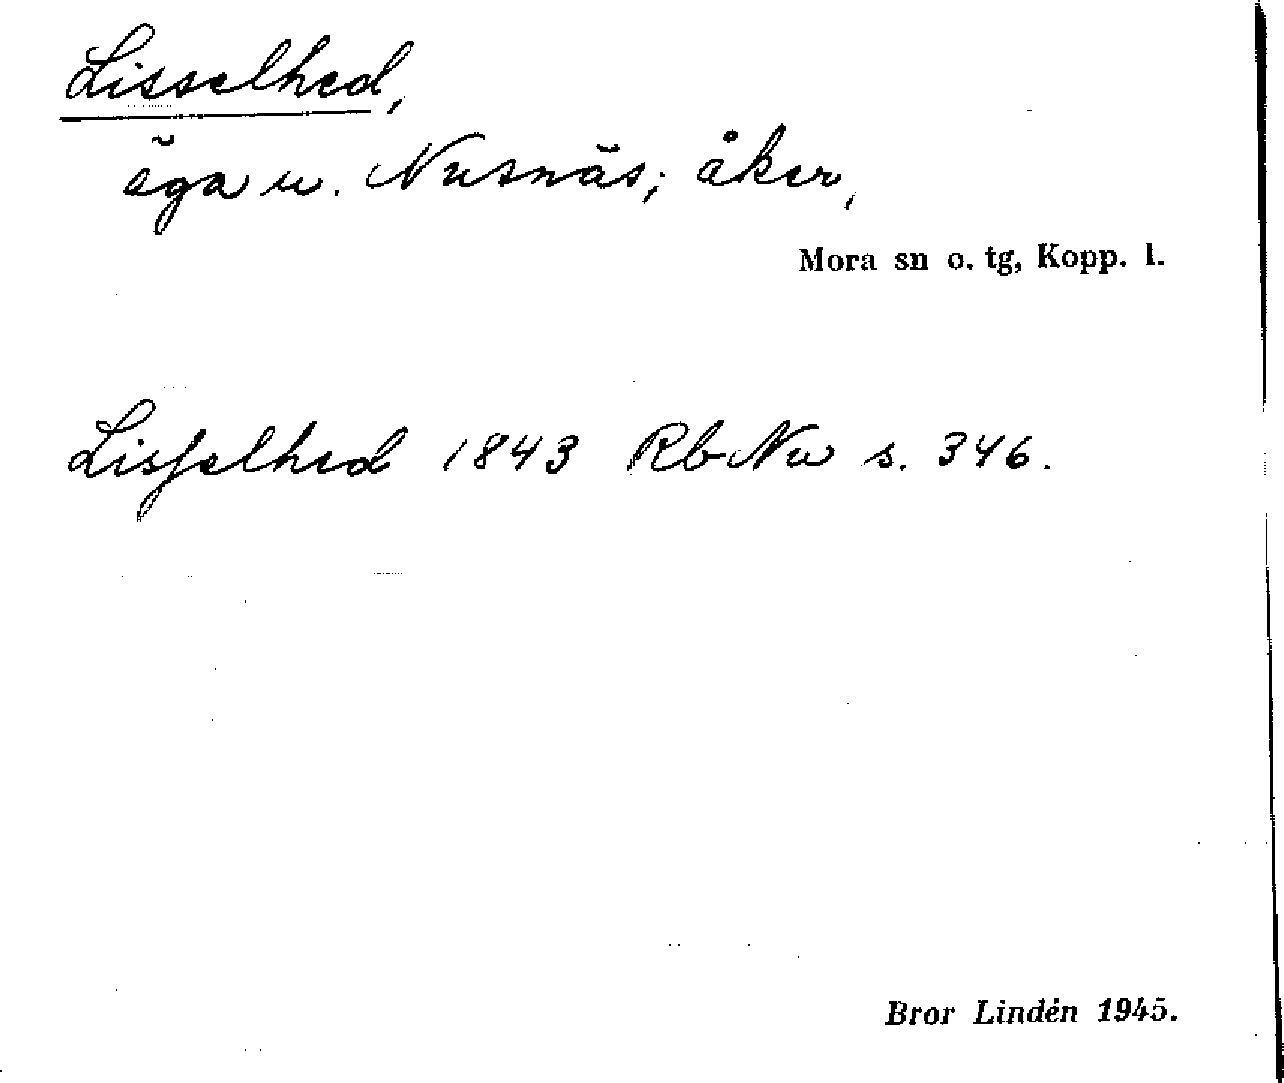 Lisselhed,
äga u. Nusnäs; åker,
Mora sn o. tg, Kopp. l.
Lisſelhed 1843 Rb Nu s. 346.
Bror Lindén 1945.